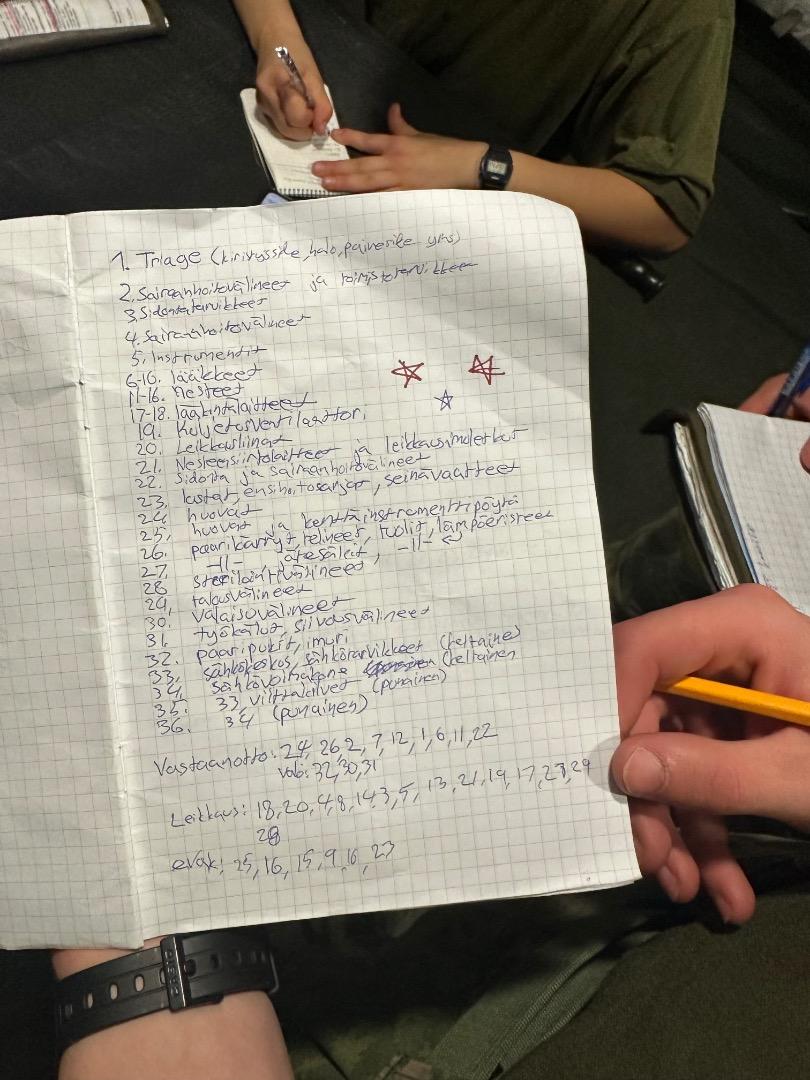 1. Triage (kiristysside, halo, paineside yms)
2. Sairaanhoitovälineet ja toimistotarvikkeet
3. Sidontatarvikkeet
4. Sairaanhoitovälineet
5. Instrumentit
6-10. Lääkkeet
11-16. Nesteet
17-18. lääkintälaitteet
19. Kuljetusventilaattori
20. Leikkausliinat
21. Nesteensiirtolaitteet ja leikkausimuletkut
22. Sidonta ja sairaanhoitovälineet
23. lastat, ensihoitosarjat, seinävaatteet
24. huovat
25. huovat ja kenttäinstrumenttipöytä
26. paarikärryt, telineet, tuolit, lämpöeristeet
27. -||- jätesäkit, -||-
28 sterilointivälineet
29. talousvälineet
30. valaisuvälineet
31. työkalut, siivousvälineet
32. paaripukit, imuri
33. sähkökeskus, sähkötarvikkeet (keltaine)
34. sähkövoimakone (keltainen
35. 33, viittatelineet (punainen)
36. 34 (punainen)
Vastaanotto: 24, 26, 2, 7, 12, 1, 6, 11, 22
valo: 32, 30, 31
Leikkaus: 18, 20, 4, 8, 14, 3, 5, 13, 21, 19, 17, 27, 29
28
evak: 25, 16, 15, 9, 10, 23